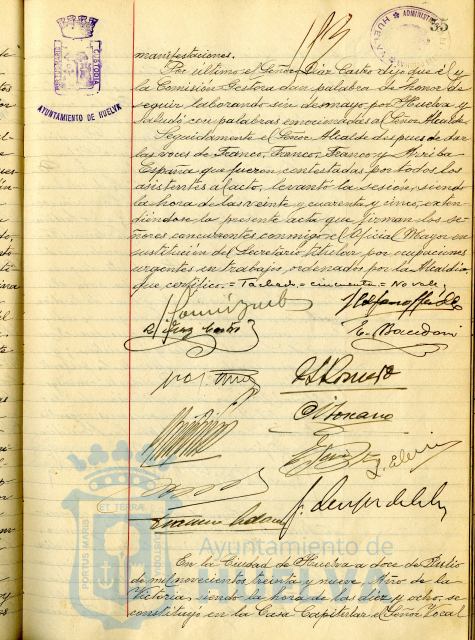 33
ADMINISTRA
HUELVA
CUSTODIA
AYUNTAMIENTO DE HUELVA
manifestaciones.
Por último el Señor Díaz Castro dijo que él y
la Comisión Gestora dan palabra de honor de
seguir laborando sin desmayo por Huelva y
saludó con palabras emocionadas al Señor Alcalde.
Seguidamente el Señor Alcalde despues de dar
las voces de Franco, Franco, Franco y Arriba
España que fueron contestadas por todos los
asistentes al acto, levantó la sesión, siendo
la hora de las veinte y cuarenta y cinco, exten-
diéndose la presente acta que firman los se-
ñores concurrentes conmigo el Oficial Mayor en
sustitución del Secretario titular por ocupaciones
urgentes en trabajos ordenados por la Alcaldía,
que certifico. = Tachado = cincuenta = No vale.
Díaz Castro
E. Bacedoni
Romero
PORTUS MARIS
ET TERRAE
CUSTODIA
Ayuntamiento de
HUELVA
En la Ciudad de Huelva a doce de Julio
de mil novecientos treinta y nueve Año de la
Victoria, siendo la hora de las diez y ocho, se
constituyó en la Casa Capitular el Señor Local